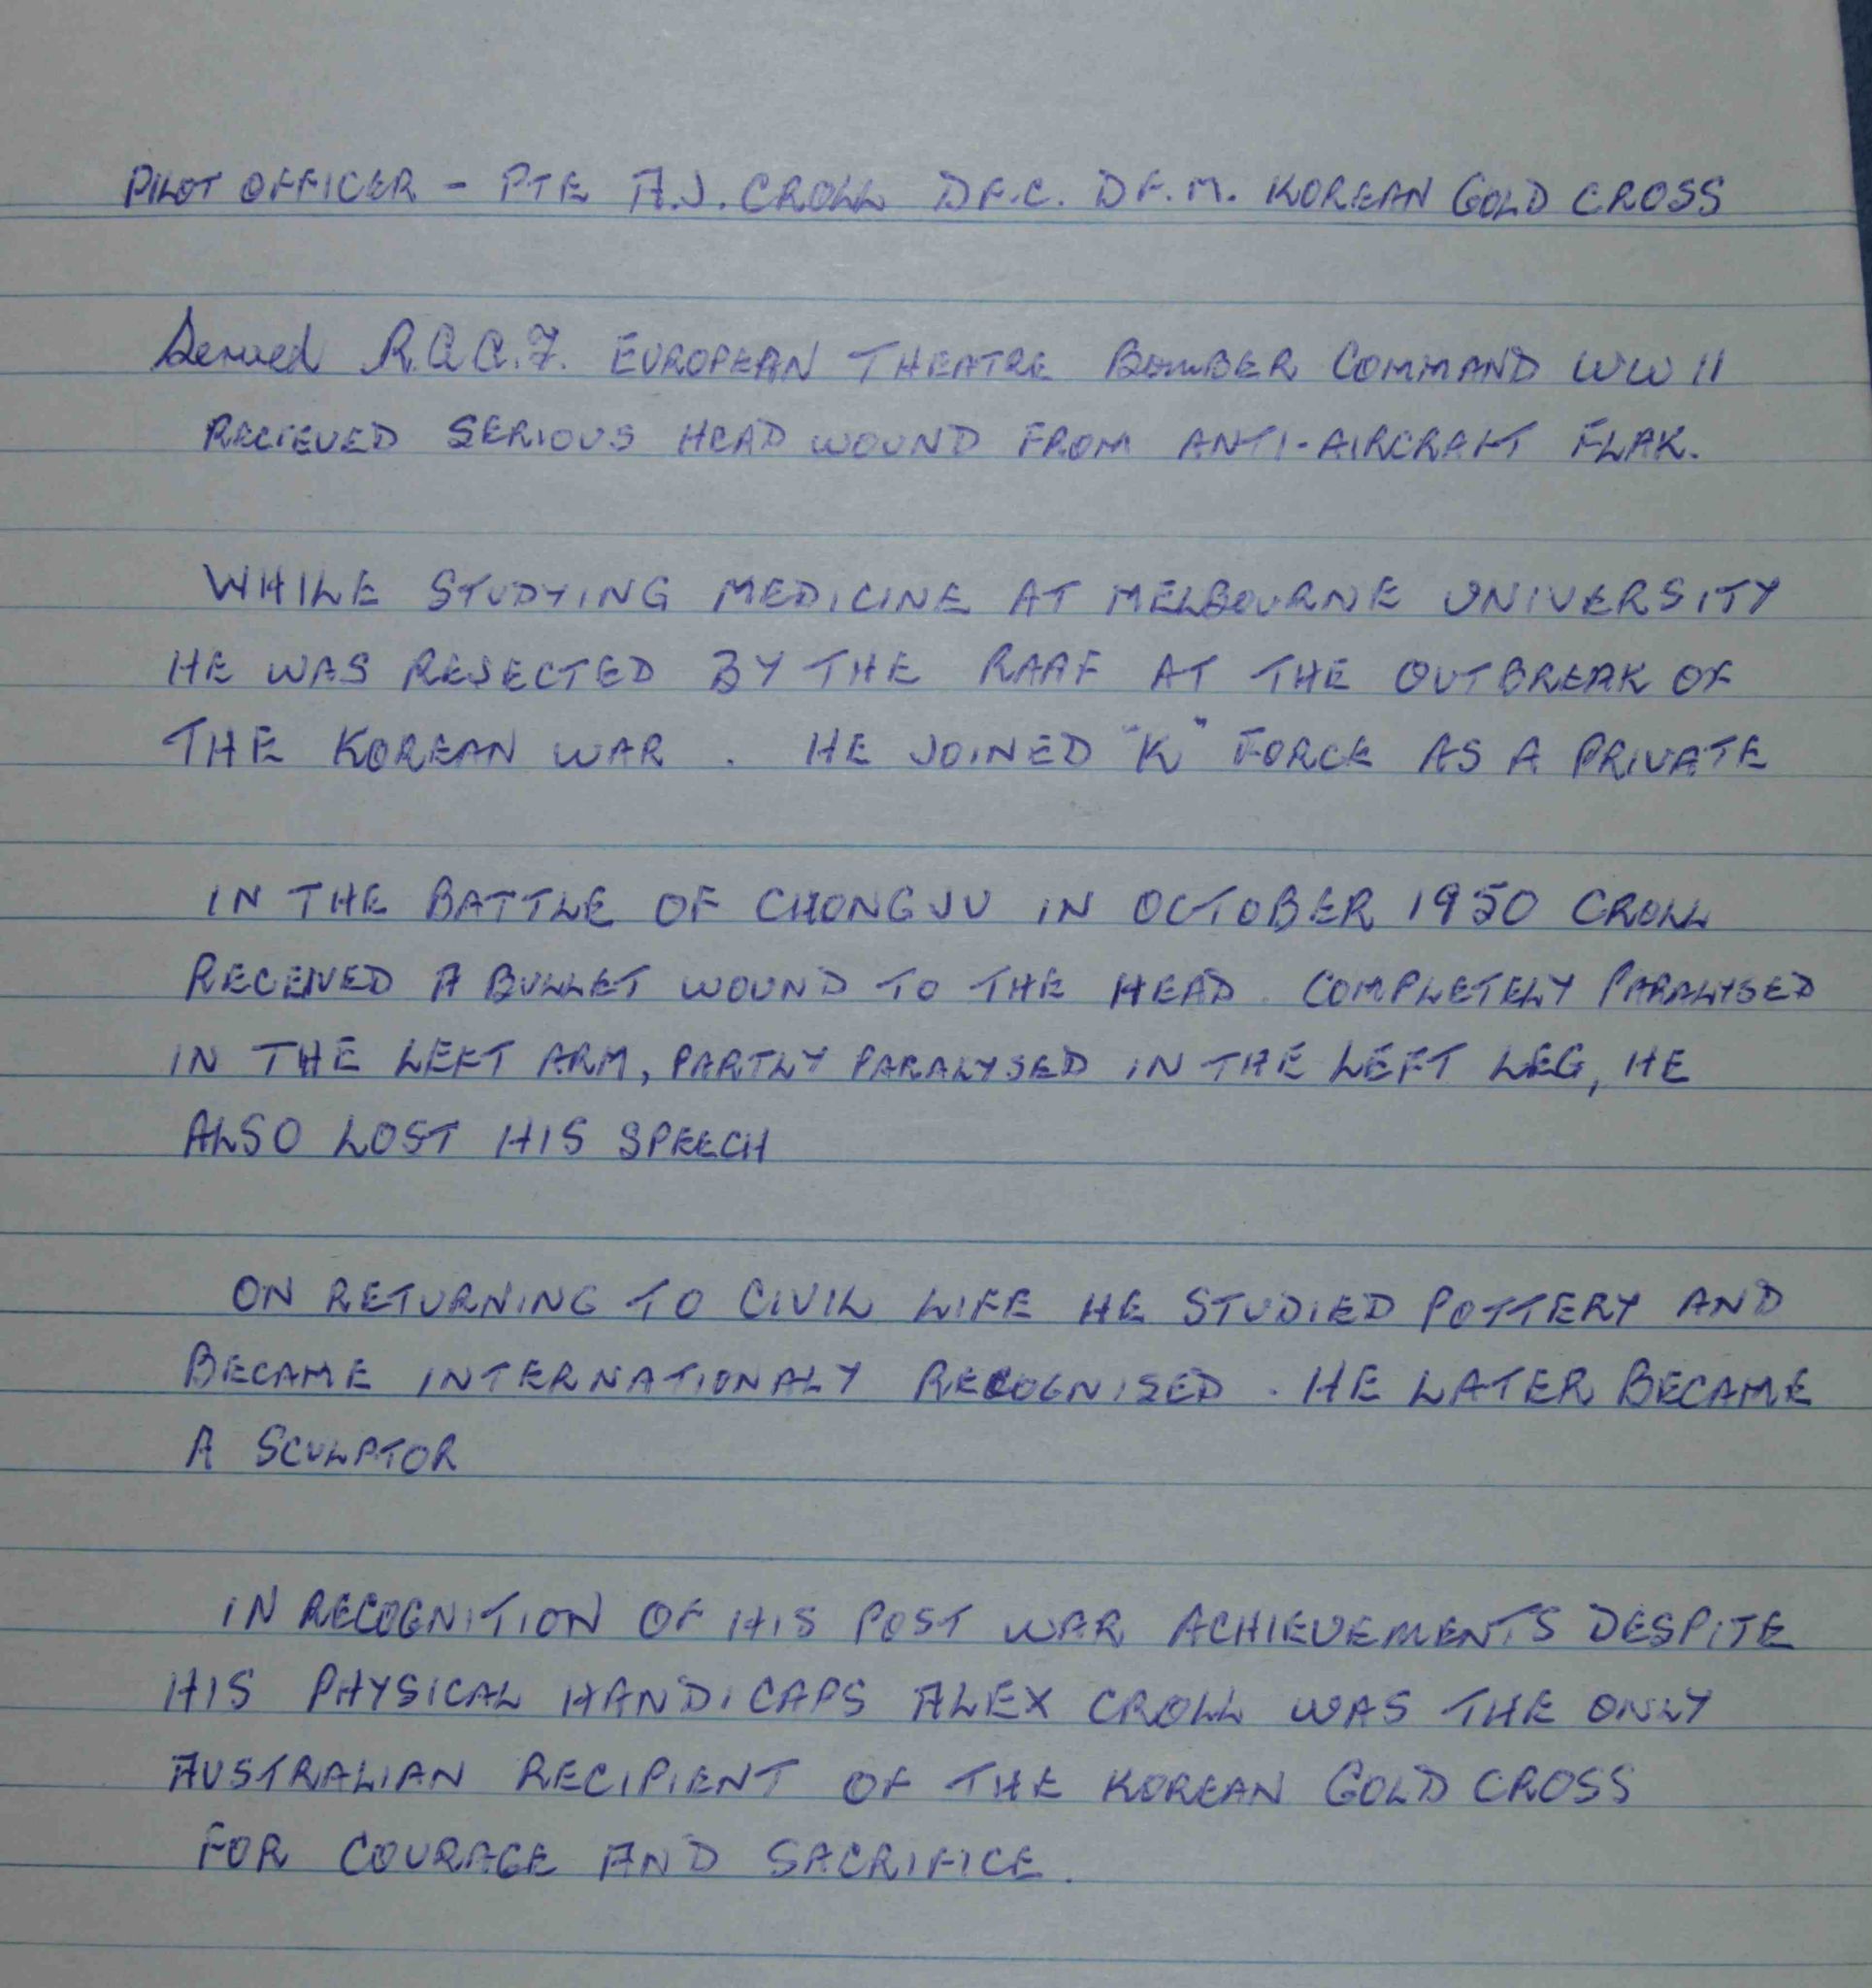 PILOT OFFICER - PTE A.J. CROLL D.F.C. D.F.M. KOREAN GOLD CROSS
Served R.A.A.F. EUROPEAN THEATRE BOMBER COMMAND WW II
RECIEVED SERIOUS HEAD WOUND FROM ANTI-AIRCRAFT FLAK.
WHILE STUDYING MEDICINE AT MELBOURNE UNIVERSITY
HE WAS REJECTED BY THE RAAF AT THE OUTBREAK OF
THE KOREAN WAR . HE JOINED "K" FORCE AS A PRIVATE
IN THE BATTLE OF CHONGJU IN OCTOBER 1950 CROLL
RECEIVED A BULLET WOUND TO THE HEAD. COMPLETELY PARALYSED
IN THE LEFT ARM, PARTLY PARALYSED IN THE LEFT LEG, HE
ALSO LOST HIS SPEECH
ON RETURNING TO CIVIL LIFE HE STUDIED POTTERY AND
BECAME INTERNATIONALY RECOGNISED . HE LATER BECAME
A SCULPTOR
IN RECOGNITION OF HIS POST WAR ACHIEVEMENTS DESPITE
HIS PHYSICAL HANDICAPS ALEX CROLL WAS THE ONLY
AUSTRALIAN RECIPIENT OF THE KOREAN GOLD CROSS
FOR COURAGE AND SACRIFICE.